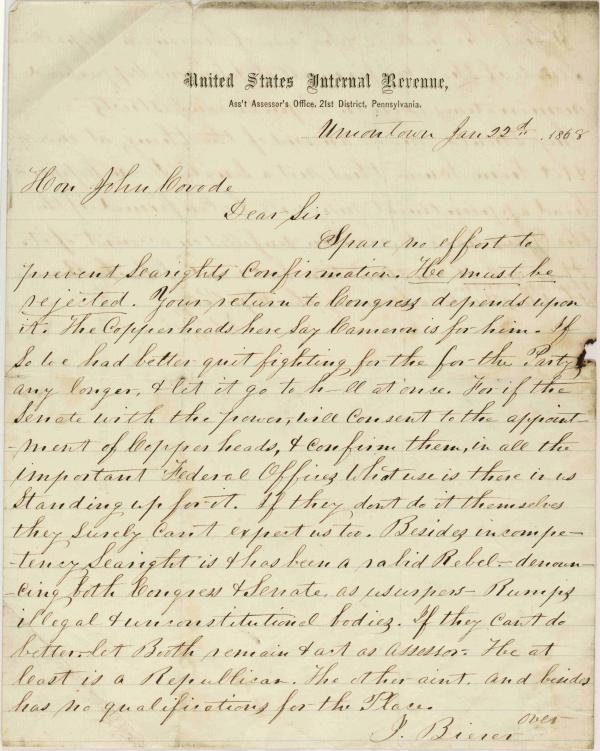 United States Internal Revenue,
Ass't Assessor's Office, 21st District, Pennsylvania.
Uniontown Jan 22d. 1868
Hon John Covode
Dear Sir
Spare no effort to
prevent Searights Confirmation. He must be
rejected. Your return to Congress depends upon
it. The Copperheads here Say Cameron is for him. If
So we had better quit fighting for the for the Party
any longer, & let it go to h-ll at once. For if the
Senate with the power, will Consent to the appoint-
-ment of Copperheads, & Confirm them, in all the
important Federal Offices What use is there in us
Standing up for it. If they dont do it themselves
they Surely Cant expect us too. Besides incompe-
-tency Searight is & has been a rabid Rebel - denoun-
-cing both Congress & Senate as usurpers - Rumps
illegal & unconstitutional bodies. If they Cant do
better - let Booth remain & act as Assessor. He at
least is a Republican. The other aint. and besides
has no qualifications for the Place.
J. Bierer over